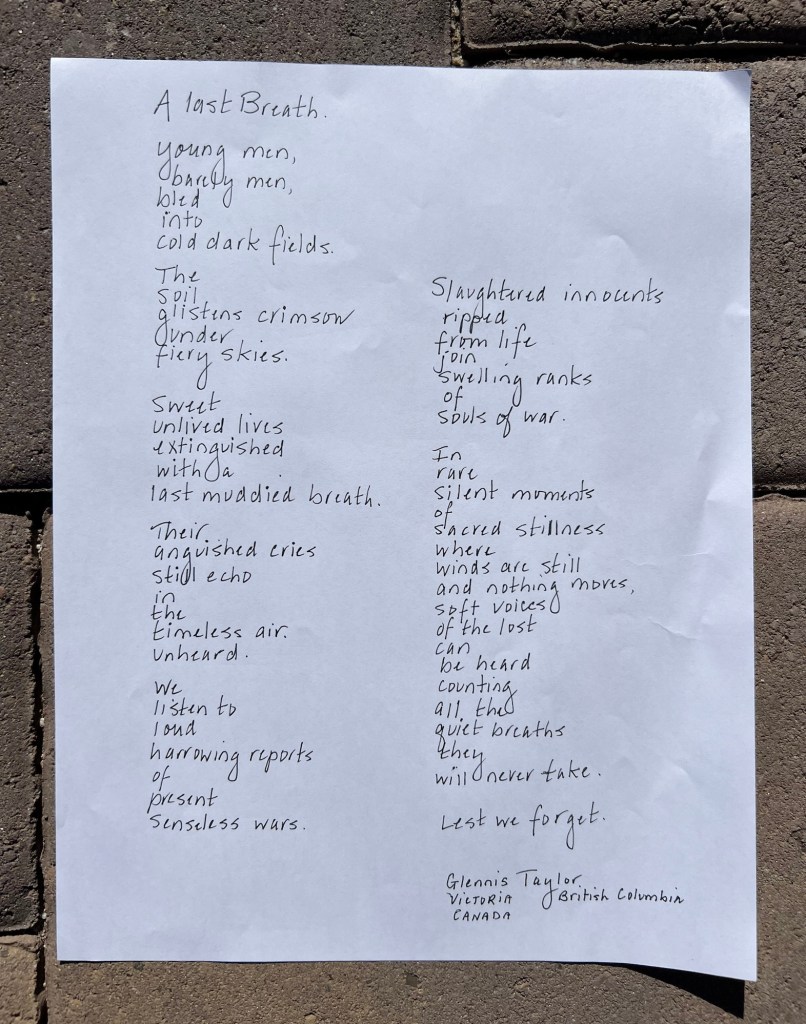 A last Breath.
young men,
barely men,
bled
into
cold dark fields.
The
soil
glistens crimson
under
fiery skies.
Sweet
unlived lives
extinguished
with a
last muddied breath.
Their
anguished cries
still echo
in
the
timeless air.
unheard.
We
listen to
loud
harrowing reports
of
present
senseless wars.
Slaughtered innocents
ripped
from life
join
swelling ranks
of
souls of war.
In
rare
silent moments
of
sacred stillness
where
winds are still
and nothing moves,
soft voices
of the lost
can
be heard
counting
all the
quiet breaths
they
will never take.
Lest we forget.
Glennis Taylor
VICTORIA British Columbia
CANADA